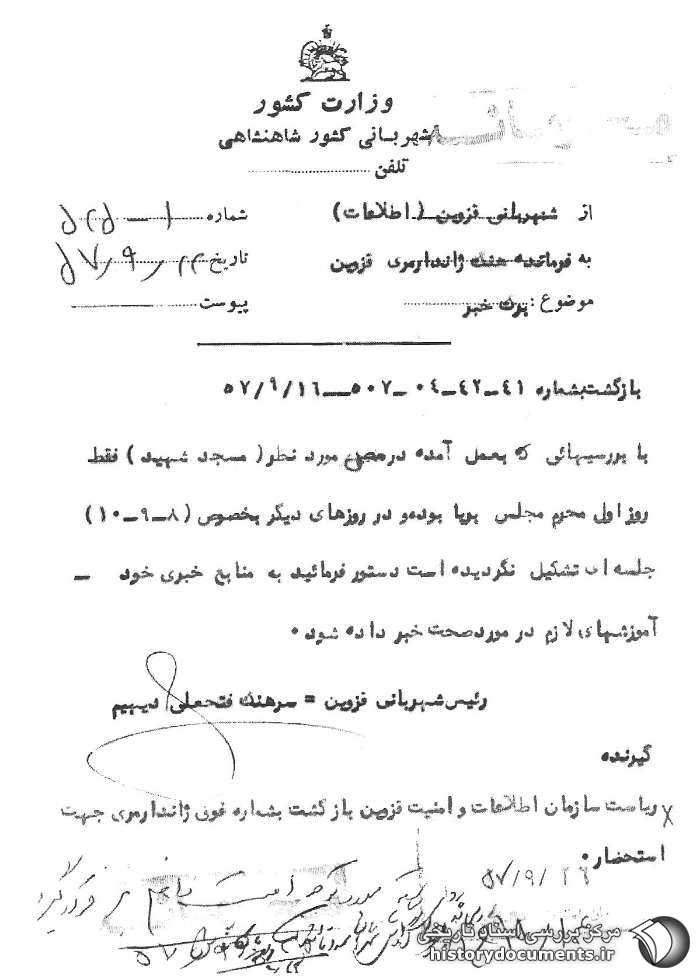 وزارت کشور
شهربانی کشور شاهنشاهی
تلفن
از شهربانی قزوین (اطلاعات)
شماره
به فرمانده هنگ ژاندارمری قزوین
تاریخ ۵۷٫۹٫۲۲
موضوع: برگ خبر
پیوست
بازگشت بشماره ۴۱–۴۲–۰۴–۵۰۷–۵۷/۹/۱۶
با بررسیهائی که بعمل آمده در محل مورد نظر (مسجد شهید) فقط
روز اول محرم مجلس برپا بوده و در روزهای دیگر بخصوص (۸–۹–۱۰)
جلسه ای تشکیل نگردیده است دستور فرمائید به منابع خبری خود –
آموزشهای لازم در مورد صحت خبر داده شود.
رئیس شهربانی قزوین = سرهنگ فتحعلی دیهیم
گیرنده
ریاست سازمان اطلاعات و امنیت قزوین بازگشت بشماره فوق ژاندارمری جهت
استحضار.
۵۷/۹/۲۶
مرکز بررسی اسناد تاریخی
historydocuments.ir